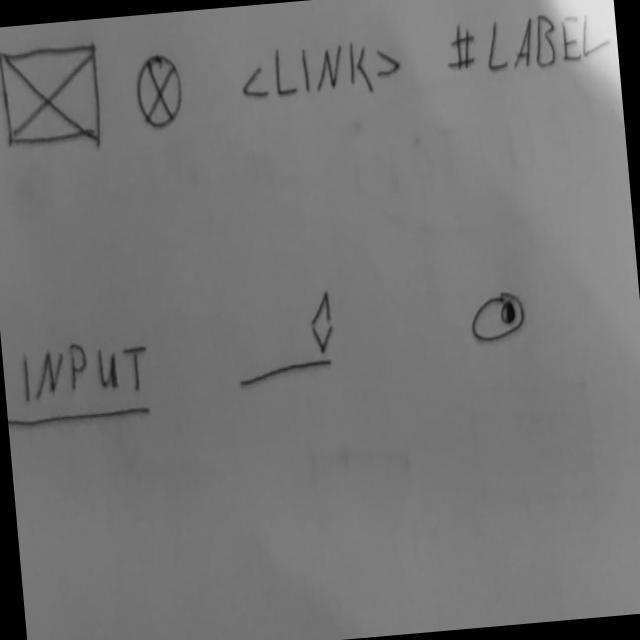 <LINK> #LABEL
INPUT